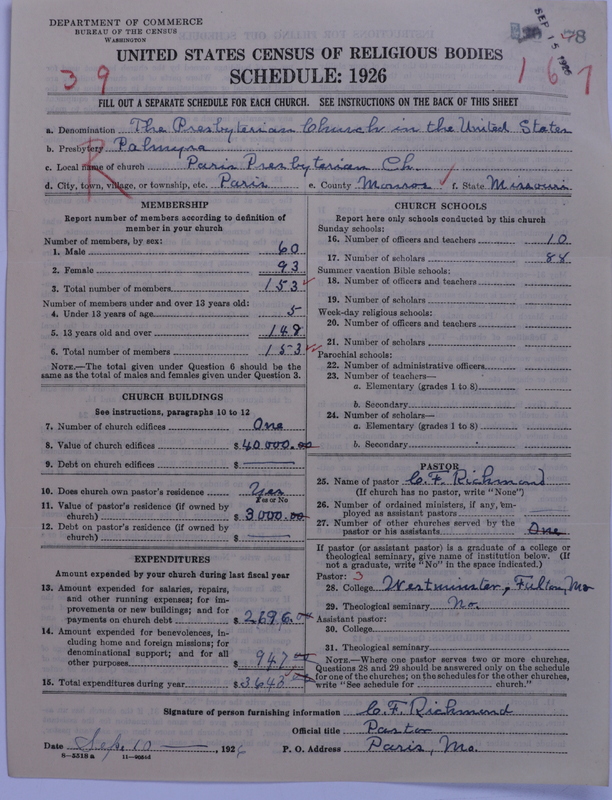 DEPARTMENT OF COMMERCE
BUREAU OF THE CENSUS
WASHINGTON
SEP 15 1926
78
UNITED STATES CENSUS OF RELIGIOUS BODIES
SCHEDULE: 1926
39
167
FILL OUT A SEPARATE SCHEDULE FOR EACH CHURCH. SEE INSTRUCTIONS ON THE BACK OF THIS SHEET
a. Denomination The Presbyterian Church in the United States
b. Presbytery Palmyra
R
c. Local name of church Paris Presbyterian Ch.
d. City, town, village, or township, etc. Paris e. County Monroe f. State Missouri
MEMBERSHIP
Report number of members according to definition of
member in your church
Number of members, by sex:
1. Male 60
2. Female 93
3. Total number of members 153
Number of members under and over 13 years old:
4. Under 13 years of age 5
5. 13 years old and over 148
6. Total number of members 153
NOTE.—The total given under Question 6 should be the
same as the total of males and females given under Question 3.
CHURCH BUILDINGS
See instructions, paragraphs 10 to 12
7. Number of church edifices One
8. Value of church edifices $40000.00
9. Debt on church edifices $ —
10. Does church own pastor's residence Yes
Yes or No
11. Value of pastor's residence (if owned by
church) $3000.00
12. Debt on pastor's residence (if owned by
church) $ —
EXPENDITURES
Amount expended by church during last fiscal year
13. Amount expended for salaries, repairs,
and other running expenses; for im-
provements or new buildings; and for
payments on church debt $2696.00
14. Amount expended for benevolences, in-
cluding home and foreign missions; for
denominational support; and for all
other purposes $947
15. Total expenditures during year $3643
CHURCH SCHOOLS
Report here only schools conducted by this church
Sunday schools:
16. Number of officers and teachers 10
17. Number of scholars 88
Summer vacation Bible schools:
18. Number of officers and teachers
19. Number of scholars
Week-day religious schools:
20. Number of officers and teachers
21. Number of scholars
Parochial schools:
22. Number of administrative officers
23. Number of teachers—
a. Elementary (grades 1 to 8)
b. Secondary
24. Number of scholars—
a. Elementary (grades 1 to 8)
b. Secondary
PASTOR
25. Name of pastor C. F. Richmond
(If church has no pastor, write "None")
26. Number of ordained ministers, if any, em-
ployed as assistant pastors
27. Number of other churches served by the
pastor or his assistants One
If pastor (or assistant pastor) is a graduate of a college or
theological seminary, give name of institution below. (If
not a graduate, write "No" in the space indicated.)
Pastor: 3
28. College Westminster, Fulton, Mo
29. Theological seminary No.
Assistant pastor:
30. College
31. Theological seminary
NOTE.—Where one pastor serves two or more churches,
Questions 28 and 29 should be answered only on the schedule
for one of the churches; on the schedules for the other churches,
write "See schedule for church."
Signature of person furnishing information C. F. Richmond
Official title Pastor
Date Sept. 10 —, 1926 P. O. Address Paris, Mo.
8—5518a